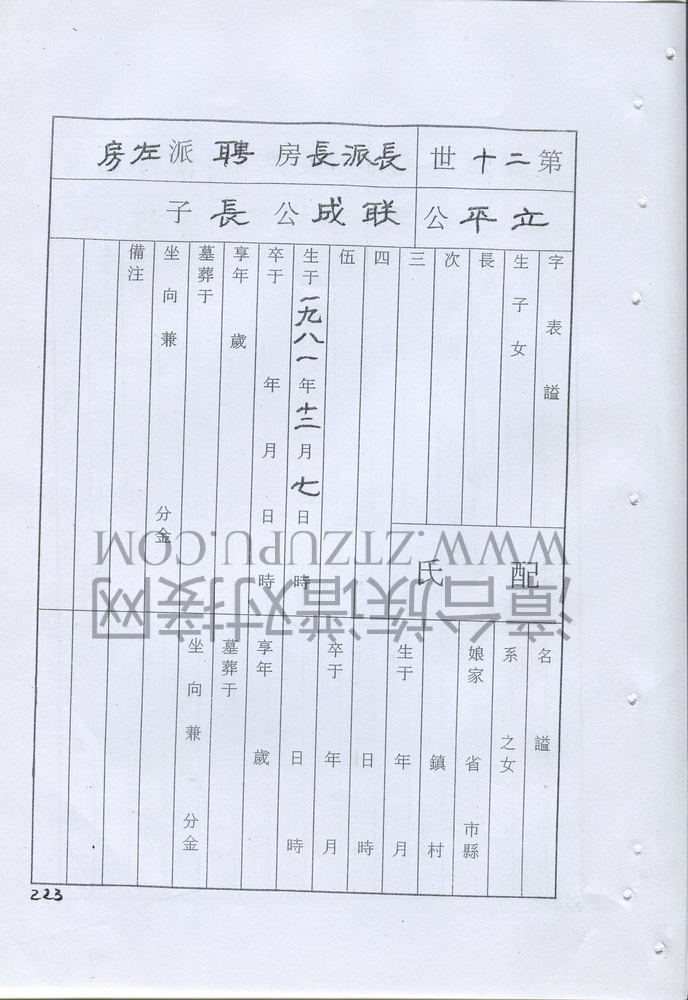 第二十世
長派長房 聘派左房
立平公
联成公長子
字表謚
生子女
長
次
三
四
伍
生于一九八一年十二月七日時
卒于年月日時
享年歲
墓葬于
坐向兼分金
備注
配氏
名謚
系之女
娘家省市縣
鎮村
生于年月
日時
卒于年月
日時
享年歲
墓葬于
坐向兼分金
223
WWW.ZTZUPU.COM
漳台族谱对接网